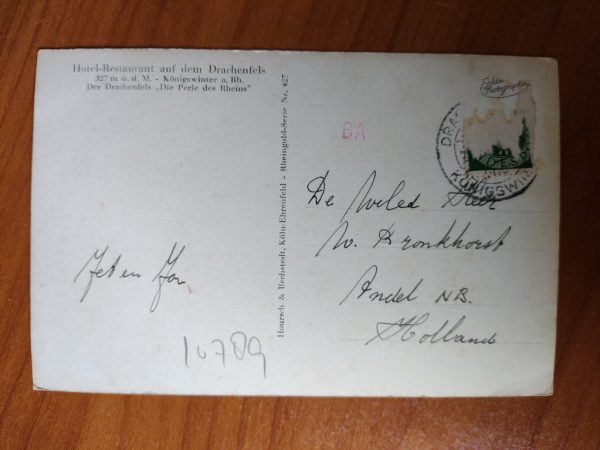 Hotel-Restaurant auf dem Drachenfels
327 m. ü. d. M. - Königswinter a. Rh.
Der Drachenfels „Die Perle des Rheins"
Hoursch & Bechstedt, Köln-Ehrenfeld - Rheingold-Serie Nr. 427
BA
Echte
Photographie
DRAC
KÖNIGSWIN
De Weled. Heer
W. Bronkhorst
Andel N.B.
Holland
Jet en Jan